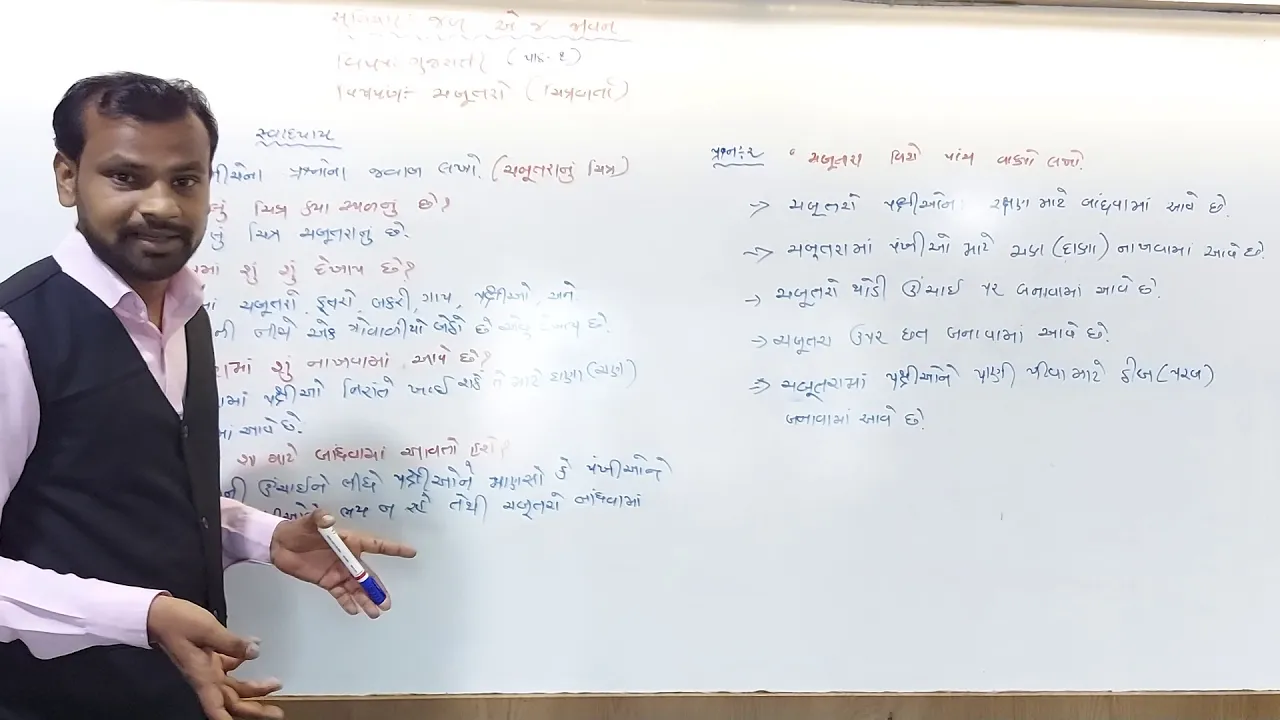 સુવિચાર: જળ એ જ જીવન
વિષય: ગુજરાતી (પાઠ-૨)
ચબૂતરો (ચિત્રવાર્તા)
સ્વાધ્યાય
પ્રશ્નોના જવાબ લખો. (ચબૂતરાનું ચિત્ર)
ચિત્ર કયા સ્થળનું છે?
ચિત્ર ચબૂતરાનું છે.
શું શું દેખાય છે?
ચબૂતરો, કૂતરો, બકરી, ગાય, પક્ષીઓ, અને
નીચે એક ગોવાળીયો બેઠો છે દેખાય છે.
શું નાખવામાં આવે છે?
પક્ષીઓ નિરાંતે ખાઈ શકે તે માટે દાણા (ચણ)
આવે છે.
શા માટે બાંધવામાં આવતો હશે?
ઊંચાઈને લીધે પક્ષીઓને માણસો કે પંખીઓને
ભય ન રહે તેથી ચબૂતરો બાંધવામાં
પ્રશ્ન:૨ ચબૂતરા વિશે પાંચ વાક્યો લખો.
→ ચબૂતરો પક્ષીઓના રક્ષણ માટે બાંધવામાં આવે છે.
→ ચબૂતરામાં પંખીઓ માટે ચણ (દાણા) નાખવામાં આવે છે.
→ ચબૂતરો થોડી ઊંચાઈ પર બનાવામાં આવે છે.
→ ચબૂતરા ઉપર છત બનાવામાં આવે છે.
→ ચબૂતરામાં પક્ષીઓને પાણી પીવા માટે (પરબ)
બનાવામાં આવે છે.